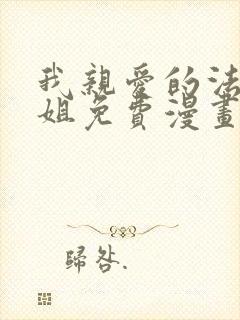 我親愛的法
姐免費漫畫
歸咎.